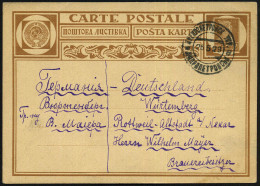 CARTE POSTALE
ПОШТОВА ЛИСТІВКА POSTA KARTЬ
Германия Deutschland
Вюртемберг Württemberg
Rottweil-Altstadt a/Neckar
В. Майера Herrn Wilhelm Mayer
Brauereibesitzer